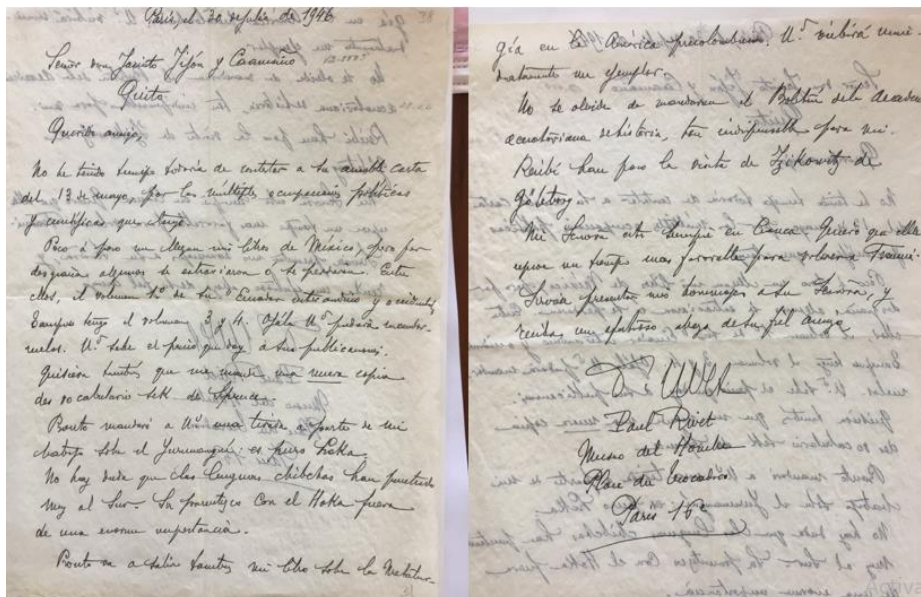 Paris, el 30 de julio de 1946
38
Señor don Jacinto Jijón y Caamaño
Quito
Querido amigo,
No he tenido tiempo todavía de contestar a su amable carta
del 13 de mayo, por las multiples ocupaciones políticas
y cientificas que tengo.
Poco a poco me llegan mis libros de México, pero por
desgracia algunos se extraviaron o se perdieron. Entre
ellos, el volumen 1º de su Ecuador interandino y occidental
Tampoco tengo el volumen 3 y 4. Ojála Uᵈ pudiera mandár-
melos. Uᵈ sabe el precio que doy a sus publicaciones.
Quisiera tambien que me mande una nueva copia
del vocabulario de Spruce.
Pronto mandaré a Uᵈ una tirada a parte de mi
trabajo sobre el Yurumanguí: es puro Hoka.
No hay duda que las lenguas chibchas han penetrado
muy al Sur. Su parentezco con el Hoka fuera
de una enorme importancia.
Pronto va a salir tambien mi libro sobre la Metalur-
gía en la América precolombina. Uᵈ recibirá inme-
diatamente un ejemplar.
No se olvide de mandarme el Boletín de la Academia
ecuatoriana de historia, tan indispensable para mi.
Recibí hace poco la visita de Izikowitz de
Göteborg.
Mi Señora está siempre en Cauca. Quiero que ella
espere un tiempo mas favorable para volver a Francia.
Sirvase presentar mis homenajes a su Señora, y
reciba un afectuoso abrazo de su fiel amigo
Paul Rivet
Museo del Hombre
Place du Trocadéro
Paris 16e